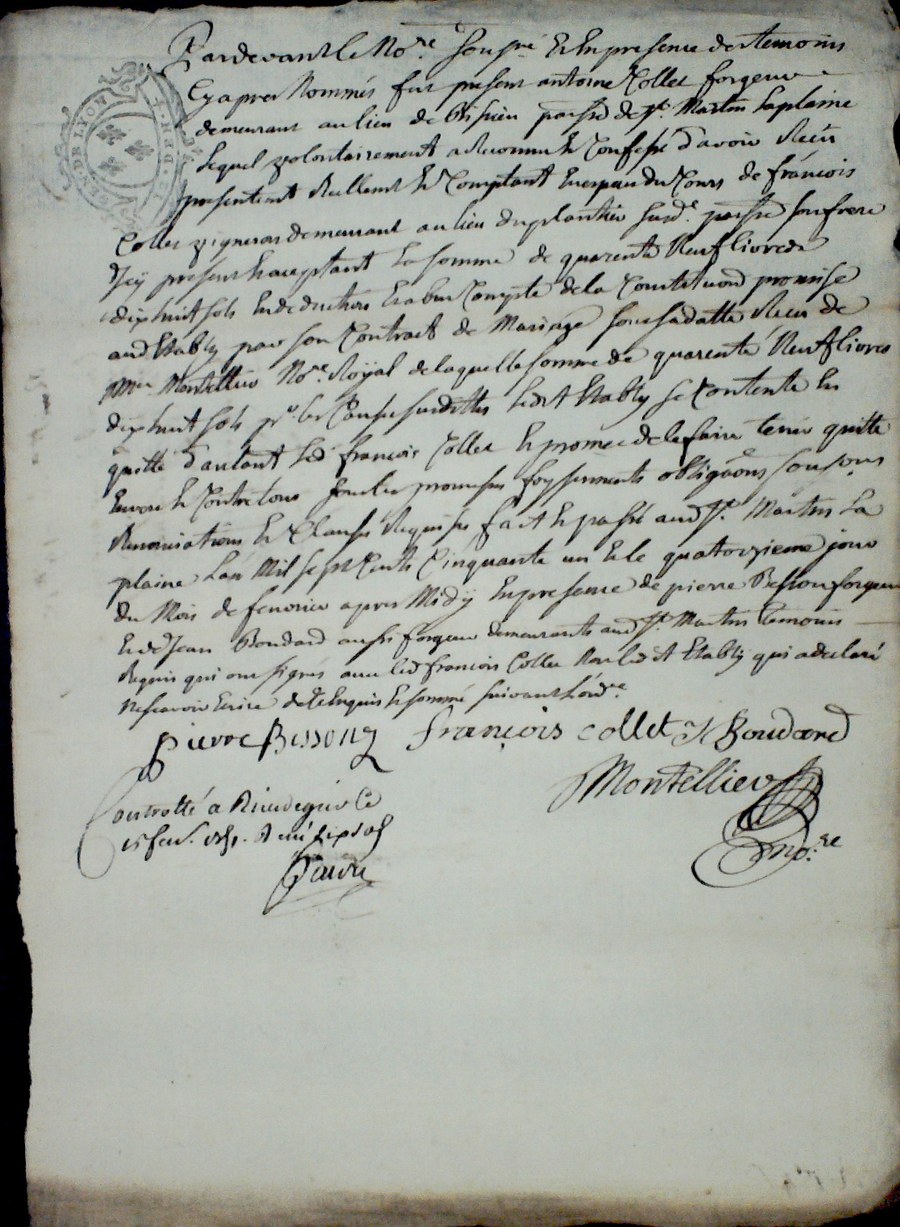 Pardevant le No.re Sousné Et En presence des temoins
Cy apres Nommés fut present antoine Collet forgeur
demeurant au lieu de Bissieu parsse de St. Martin Laplaine
Lequel volontairement a Reconnu et Confessé d'avoir Reçu
presentemt Reellemt Et Comptant En especes du Cours de françois
Collet vigneron demeurant au lieu duplantier susd.e parsse son frere
Icy present Et acceptant la somme de quarente Neuf livres
dix huit sols En deduction Et a bon Compte de la Constitution promise
aud Etably par son Contract de Mariage sous sa datte Reçu de
Me Montellier No.re Royal de laquelle somme de quarente Neuf livres
dix huit sols pr. les Causes susdittes Ledt Etably se Contente Et
quitte d'autant led françois Collet Et promet de le faire tenir quitte
Envers Et Contre tous sous les promesses foy serments obligãons soumons
Renonciations Et Clauses Requises fait Et passé aud St. Martin La
plaine L'an Mil sept Cents Cinquante un Et le quatorzieme jour
du Mois de fevrier apres Midÿ En presence de pierre Besson forgeur
Et de Jean Boudard aussi forgeur demeurants aud St. Martin temoins
Requis qui ont signés avec led françois Collet Non led t Etably qui a declaré
Ne sçavoir Ecrire de ce Enquis Et sommé suivant L'ord.ce
pierre Besson françois Collet J Boudard
Montellier
No.re
Controllé a Rivedegier Ce
15 fev. 1751. R six sols
GENE DE LYON